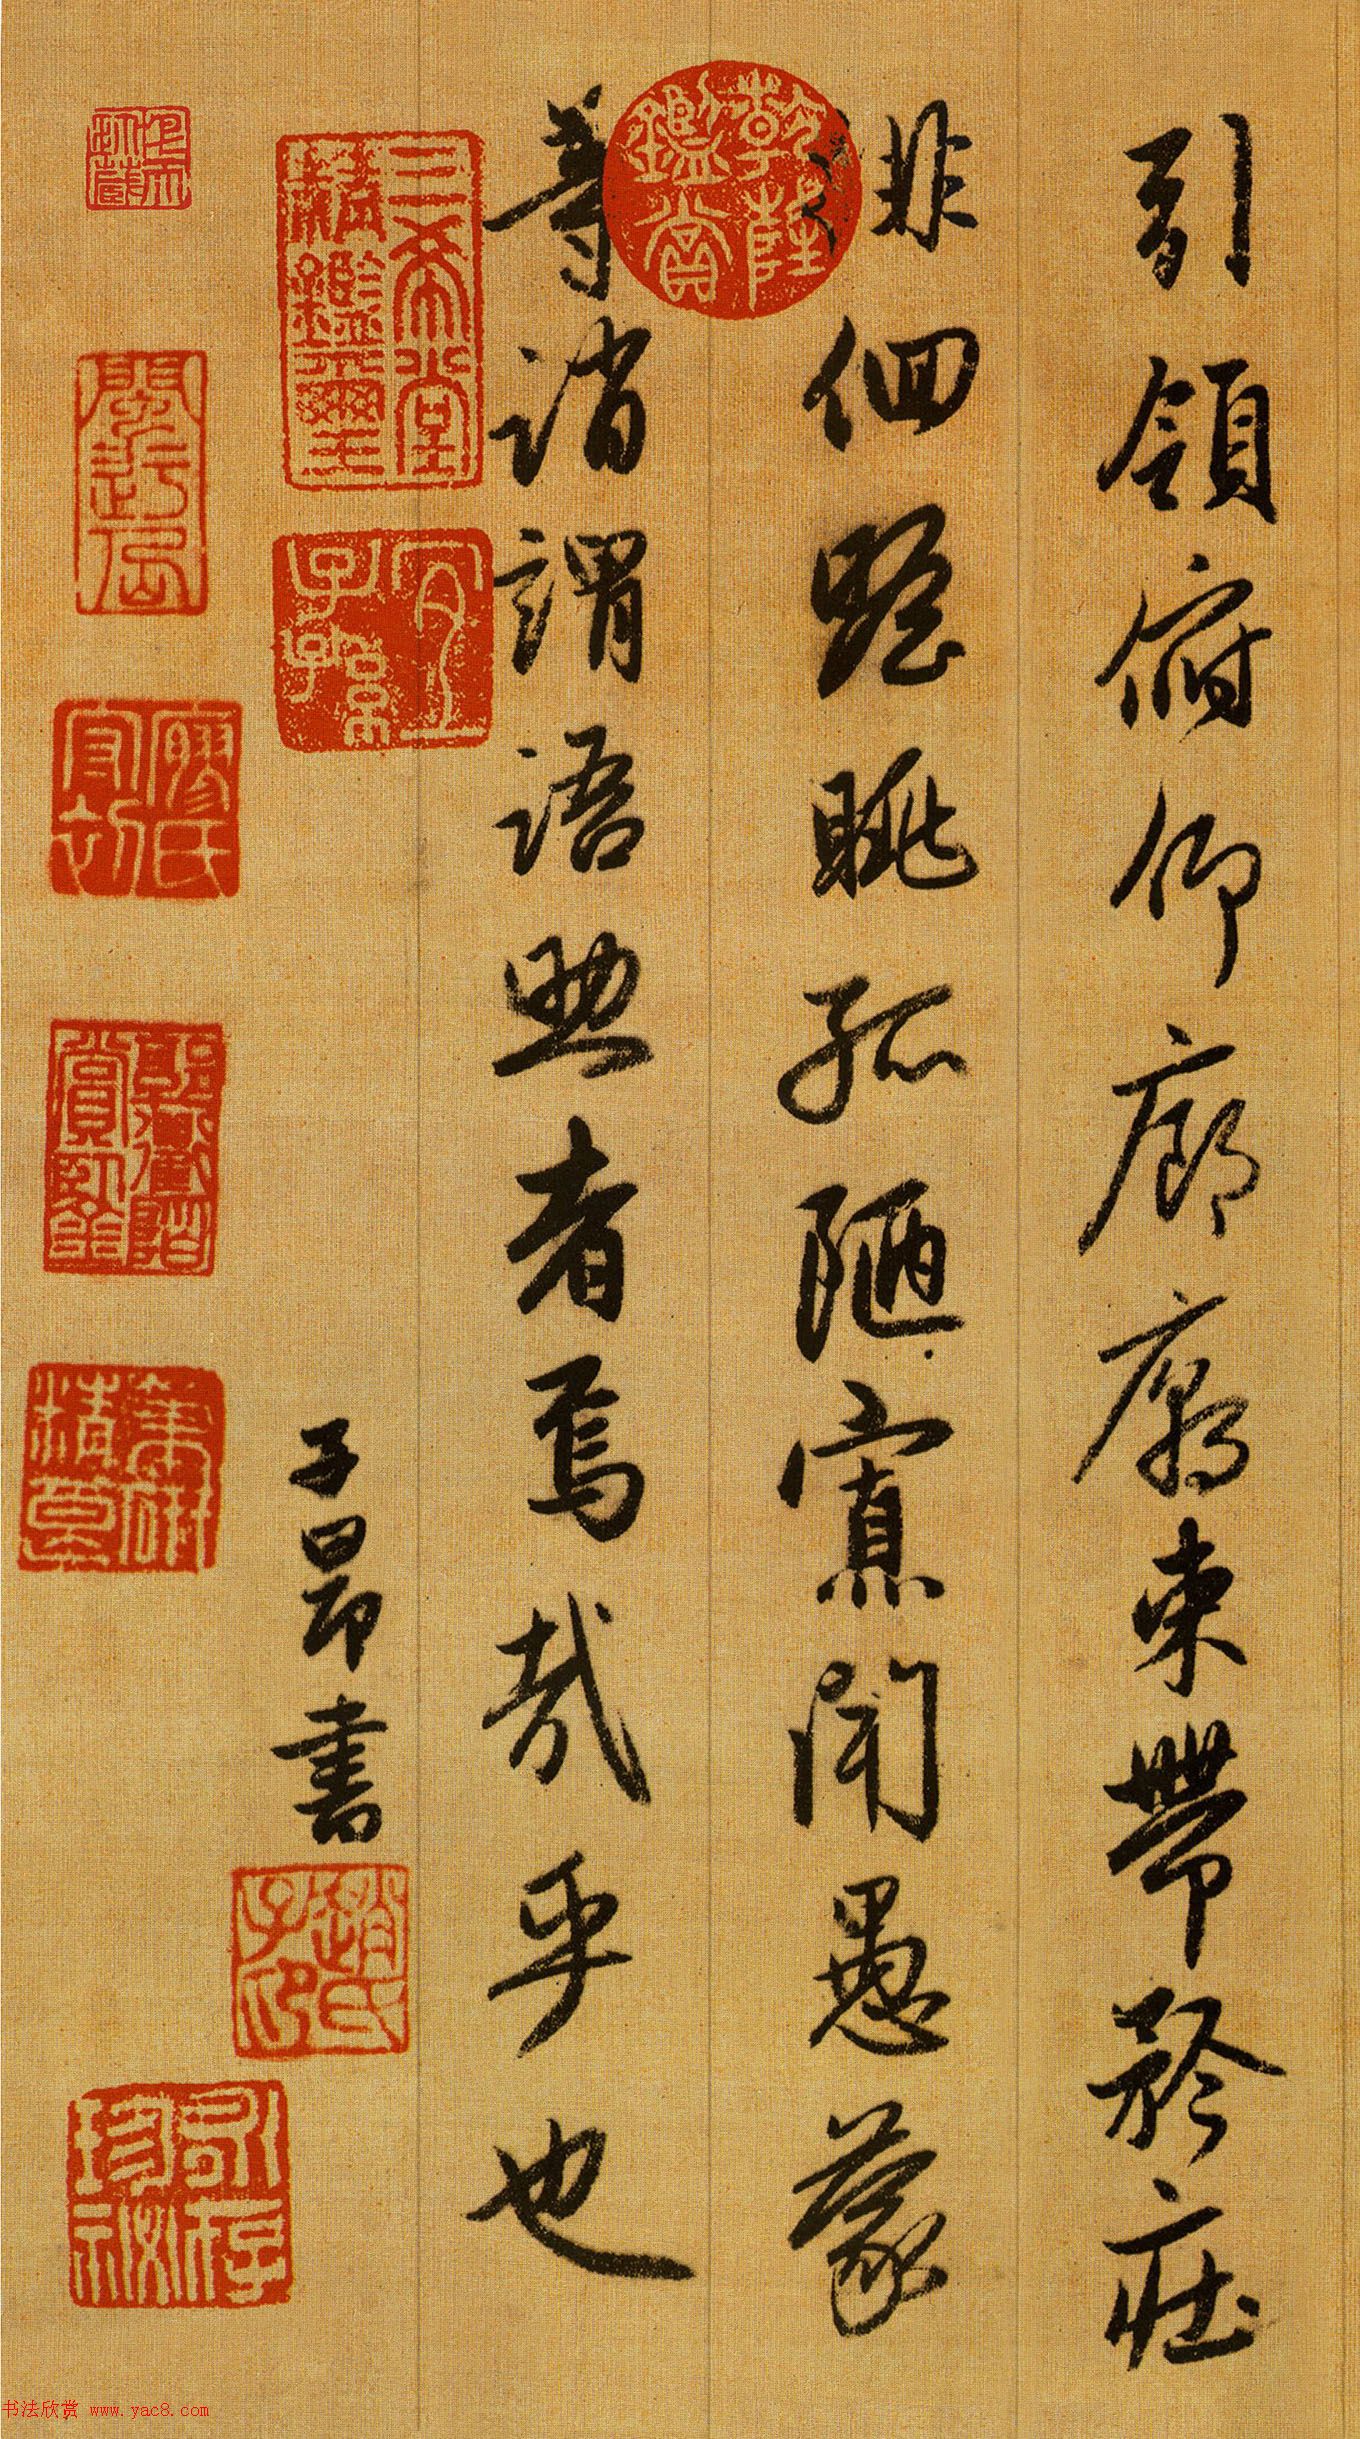 引領俯仰廊廟束帶矜莊
徘徊瞻眺孤陋寡聞愚蒙
等誚謂語助者焉哉乎也
子昂書
乾隆鑑賞
三希堂精鑑璽
宜子孫
趙氏子印
書法欣赏 www.yac8.com